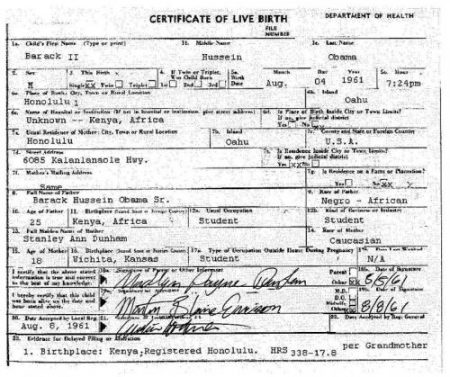 CERTIFICATE OF LIVE BIRTH
DEPARTMENT OF HEALTH
FILE NUMBER
1a. Child's First Name (Type or print) 1b. Middle Name 1c. Last Name
Barack II Hussein Obama
2. Sex 3. This Birth 4. If Twin or Triplet, Was Child Born 5a. Birth Date Month Day Year 5b. Hour
M Single XX Twin Triplet 1st 2nd 3rd Aug. 04 1961 7:24pm
6a. Place of Birth: City, Town or Rural Location 6b. Island
Honolulu 1 Oahu
6c. Name of Hospital or Institution (If not in hospital or institution, give street address) 6d. Is Place of Birth Inside City or Town Limits? If no, give judicial district
Unknown -- Kenya, Africa Yes No
7a. Usual Residence of Mother: City, Town or Rural Location 7b. Island 7c. County and State or Foreign Country
Honolulu Oahu U.S.A.
7d. Street Address 7e. Is Residence Inside City or Town Limits? If no, give judicial district
6085 Kalanianaole Hwy. Yes No
7f. Mother's Mailing Address 7g. Is Residence on a Farm or Plantation?
Same Yes No
8. Full Name of Father 9. Race of Father
Barack Hussein Obama Sr. Negro - African
10. Age of Father 11. Birthplace 12a. Usual Occupation 12b. Kind of Business or Industry
25 Kenya, Africa Student Student
13. Full Maiden Name of Mother 14. Race of Mother
Stanley Ann Dunham Caucasian
15. Age of Mother 16. Birthplace 17a. Type of Occupation Outside Home During Pregnancy 17b.
18 Wichita, Kansas Student N/A
I certify that the above stated information is true and correct to the best of my knowledge. 18a. Signature of Parent or Other Informant Parent Other 18b. Date of Signature
Madelyn Payne Dunham 8/8/61
I hereby certify that this child was born alive on the date and hour stated above. 19a. M.D. D.O. Midwife Other 19b. Date of Signature
8/8/61
20. Date Accepted by Local Reg. 21. 22. Date Accepted by Reg. General
Aug. 8, 1961
23. Evidence for Delayed Filing or Alteration
1. Birthplace: Kenya, Registered Honolulu. HRS 338-17.8 per Grandmother